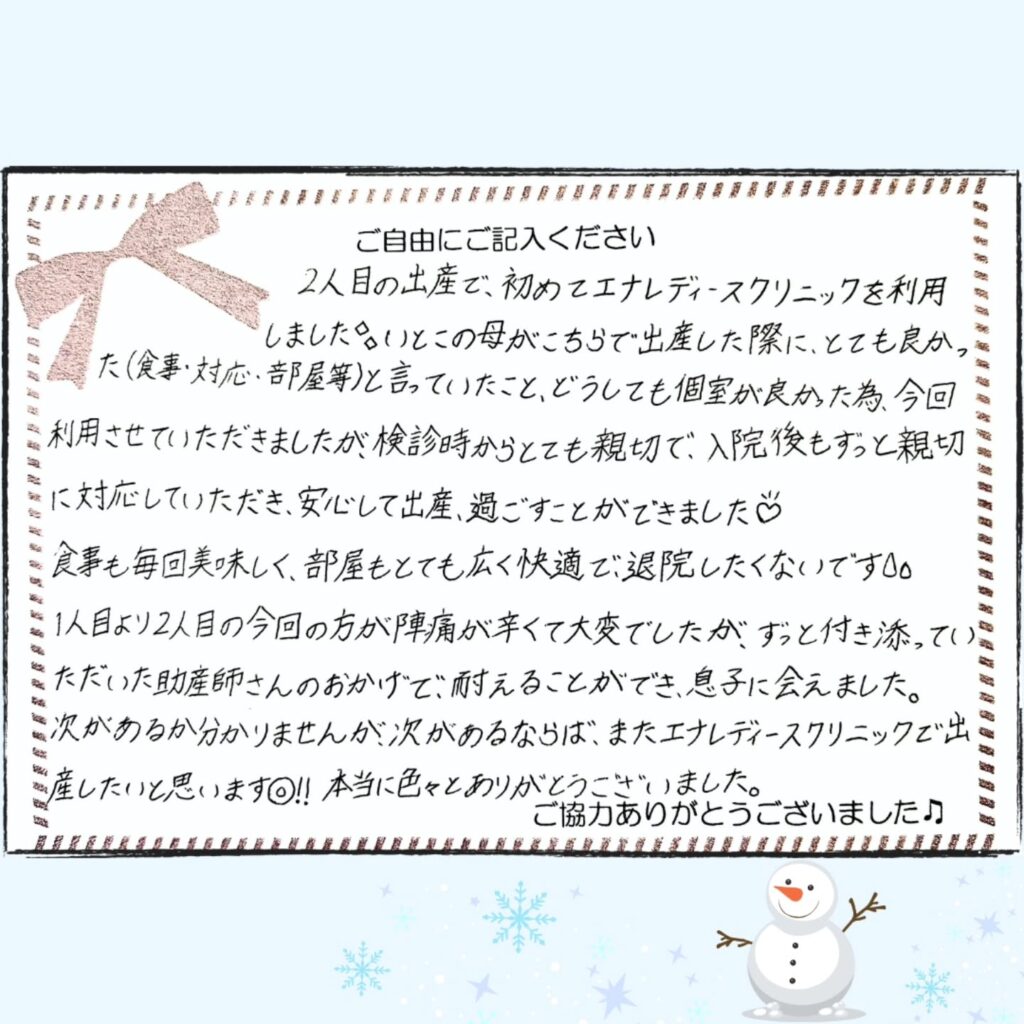 ご自由にご記入ください
2人目の出産で、初めてエナレディースクリニックを利用
しました。いとこの母がこちらで出産した際に、とても良かっ
た(食事・対応・部屋等)と言っていたこと、どうしても個室が良かった為、今回
利用させていただきましたが、検診時からとても親切で、入院後もずっと親切
に対応していただき、安心して出産、過ごすことができました♡
食事も毎回美味しく、部屋もとても広く快適で、退院したくないです
1人目より2人目の今回の方が陣痛が辛くて大変でしたが、ずっと付き添ってい
ただいた助産師さんのおかげで、耐えることができ、息子に会えました。
次があるか分かりませんが、次があるならば、またエナレディースクリニックで出
産したいと思います◎!! 本当に色々とありがとうございました。
ご協力ありがとうございました♫